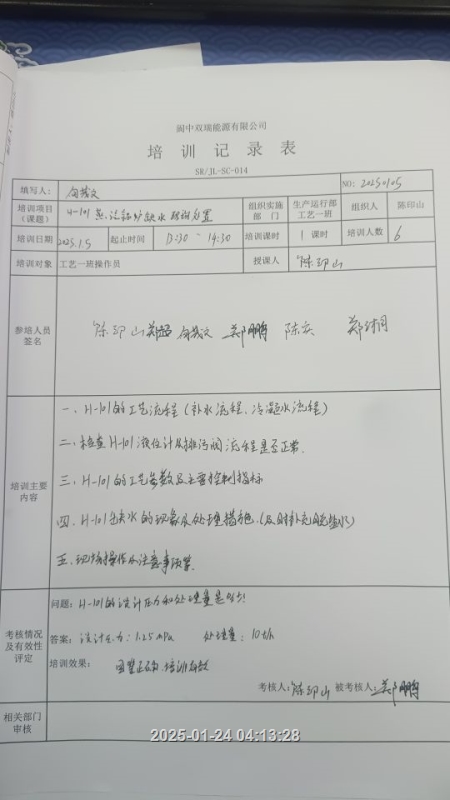 阆中双瑞能源有限公司
培 训 记 录 表
SR/JL-SC-014
填写人： NO: 20250105
培训项目（课题） H-101蒸汽锅炉缺水 处置 组织实施部门 生产运行部工艺一班 组织人 陈印山
培训日期 2025.1.5 起止时间 13:30 ~ 14:30 培训课时 1 课时 培训人数 6
培训对象 工艺一班操作员 授课人 陈印山
参培人员签名 陈印山 郑鹏 陈兵
培训主要内容
一、H-101的工艺流程（补水流程、冷凝水流程）
二、检查H-101液位计及排污阀流程是否正常.
三、H-101的工艺参数及主要控制指标
四、H-101缺水的现象及处理措施.（及时补充脱盐水）
五、现场操作及注意事项.
考核情况及有效性评定
问题: H-101的设计压力和处理量是多少?
答案: 设计压力: 1.25mPa 处理量: 10t/h
培训效果: 回答正确、培训有效
考核人: 陈印山 被考核人: 郑鹏
相关部门审核
2025-01-24 04:13:28